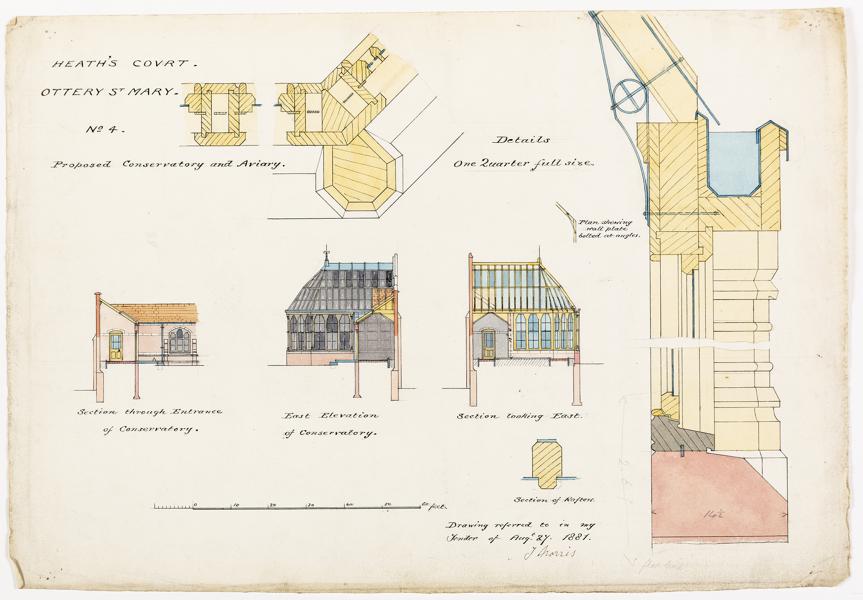 HEATH'S COVRT.
OTTERY ST MARY.
No 4.
Proposed Conservatory and Aviary.
Details
One Quarter full size.
Plan shewing
wall plate
bolted at angles.
Section through Entrance
of Conservatory.
East Elevation
of Conservatory.
Section looking East.
Section of Rafter.
0 10 20 30 40 50 60 feet.
Drawing referred to in my
Tender of Augt 27. 1881.